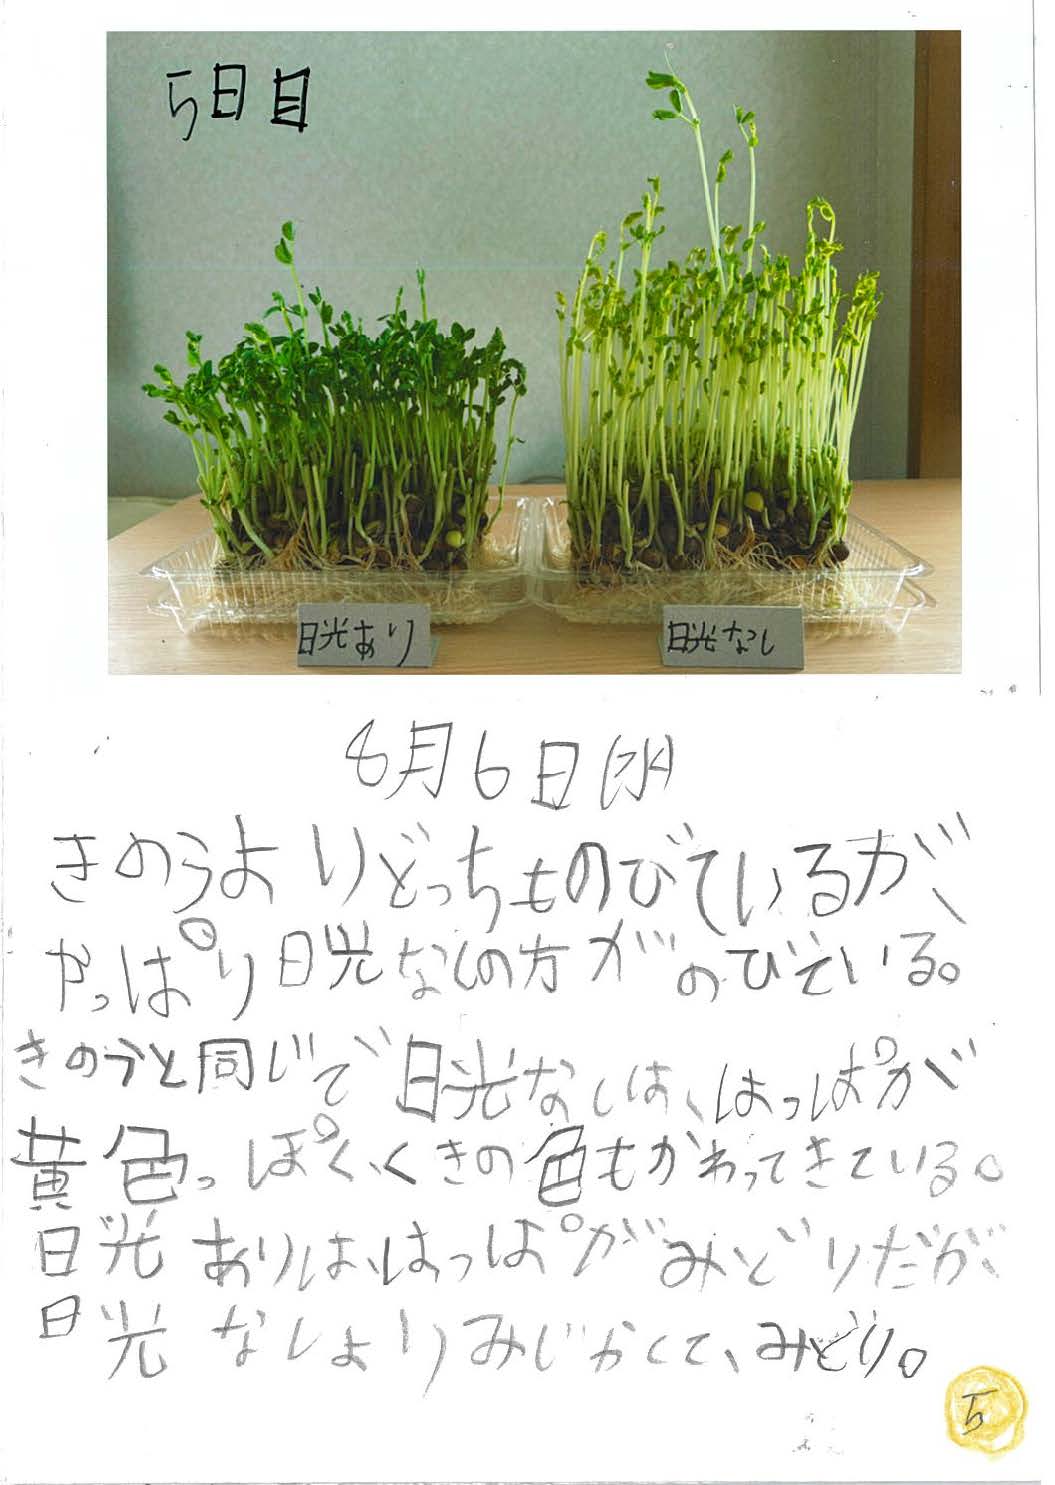 5日目
日光あり
日光なし
8月6日(水)
きのうよりどっちものびているが、
やっぱり日光なしの方がのびている。
きのうと同じで日光なしは、はっぱが
黄色っぽく、くきの色もかわってきている。
日光ありは、はっぱがみどりだが、
日光なしよりみじかくて、みどり。
5